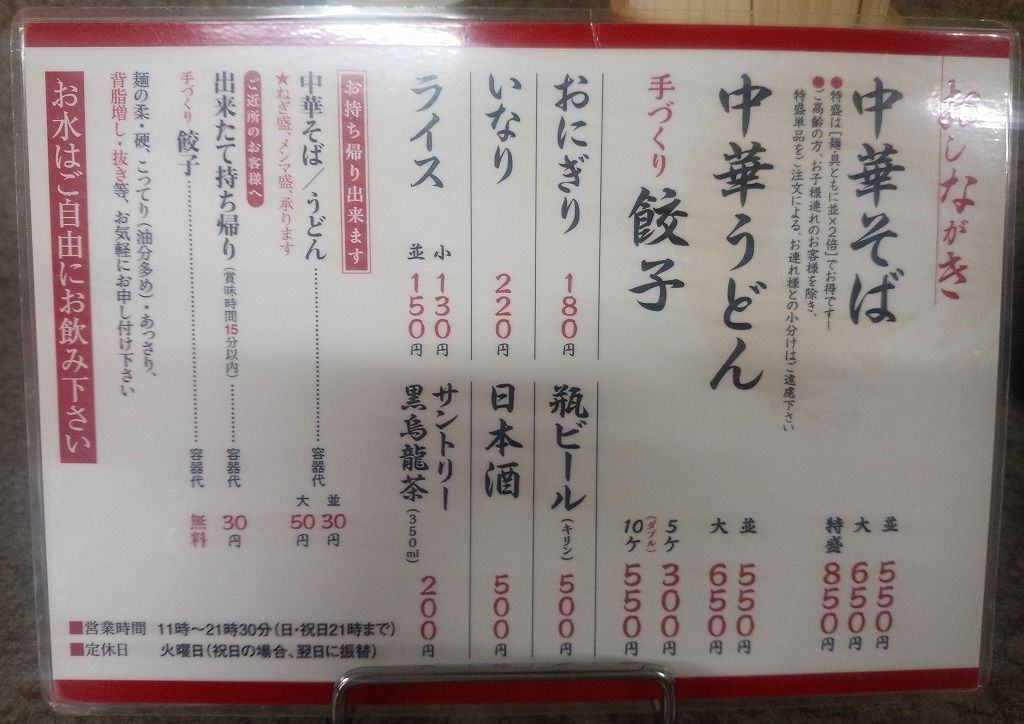 おしながき
中華そば
並 550円
大 650円
特盛 850円
●特盛は［麺・具ともに並×2倍］でお得です！
●ご高齢の方、お子様連れのお客様を除き、
特盛単品をご注文による、お連れ様との小分けはご遠慮下さい
中華うどん
並 550円
大 650円
手づくり 餃子
5ケ 300円
(ダブル)
10ケ 550円
おにぎり 180円
いなり 220円
ライス
小 130円
並 150円
瓶ビール(キリン) 500円
日本酒 500円
サントリー
黒烏龍茶(350ml) 200円
お持ち帰り出来ます
中華そば／うどん………容器代
並 30円
大 50円
★ねぎ盛、メンマ盛、承ります
ご近所のお客様へ
出来たて持ち帰り(賞味時間15分以内)………容器代 30円
手づくり 餃子………容器代 無料
麺の柔・硬、こってり(油分多め)・あっさり、
背脂増し・抜き等、お気軽にお申し付け下さい
お水はご自由にお飲み下さい
■営業時間 11時〜21時30分(日・祝日21時まで)
■定休日 火曜日(祝日の場合、翌日に振替)